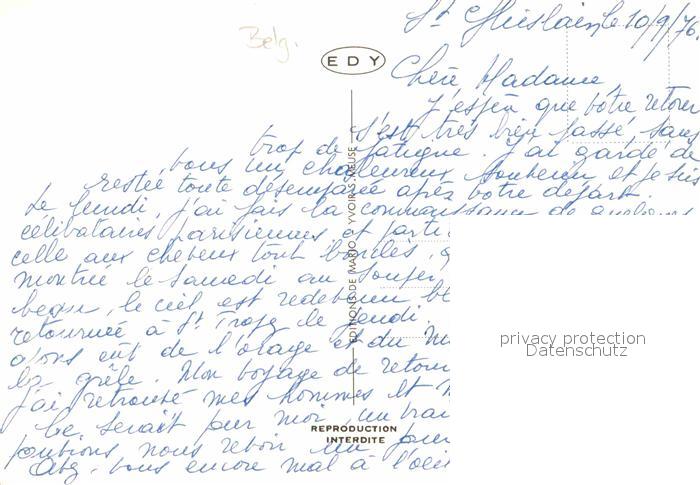 St Ghislain, le 10/9/76.
Belg.
EDY
Chère Madame,
J'espère que vôtre retour
s'est très bien passé, sans
trop de fatigue. J'ai gardé de
vous un chaleureux souvenir et je suis
restée toute désemparée après vôtre départ.
Le Jeudi, j'ai fais la connaissance de quelques
célibataires parisiennes et
celle aux cheveux tout bouclés,
montrée le Samedi au Souper,
le ciel est redevenu
retournée à St Tropez le Jeudi.
avons eut de l'orage et du
la grêle. Mon voyage de retour
j'ai retrouvé mes hommes et
Ce serait pour moi, un vrai
pouvions nous revoir un jour
vous encore mal à l'oeil
EDITIONS DE MARIO - YVOIR S/MEUSE
REPRODUCTION
INTERDITE
privacy protection
Datenschutz